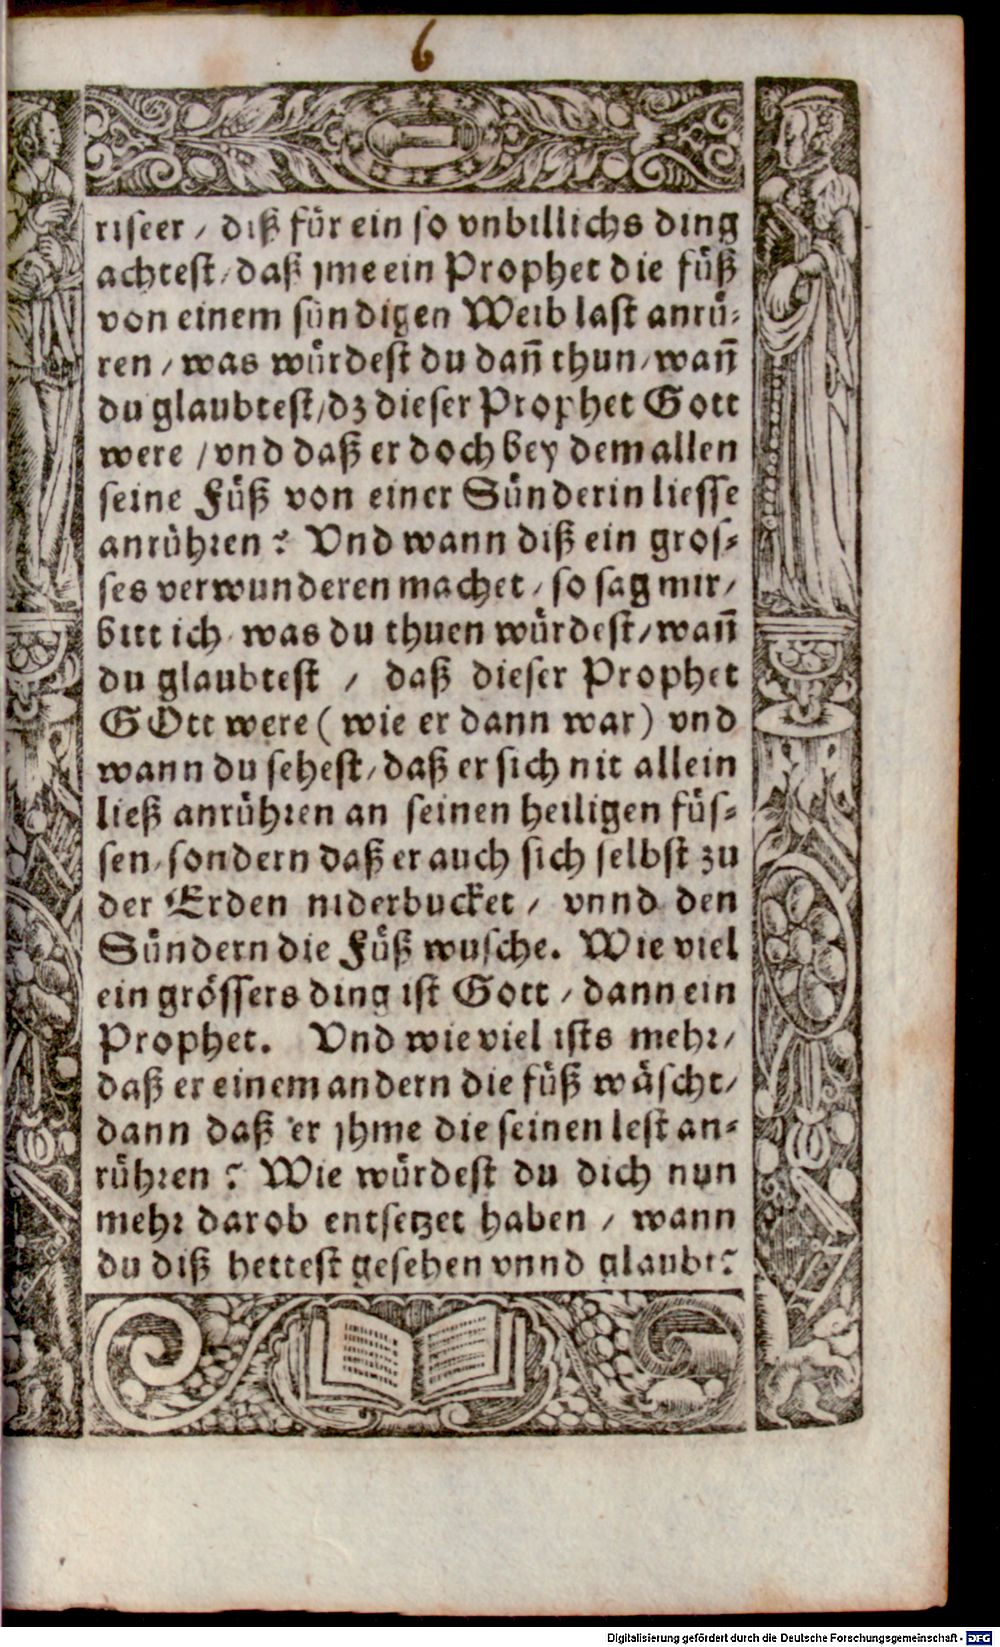 6
riseer / diß für ein so vnbillichs ding
achtest / daß jme ein Prophet die füß
von einem sündigen Weib last anrü⸗
ren / was würdest du dañ thun / wañ
du glaubtest / dz dieser Prophet Gott
were / vnd daß er doch bey dem allen
seine Füß von einer Sünderin liesse
anrühren? Vnd wann diß ein gros⸗
ses verwunderen machet / so sag mir /
bitt ich / was du thuen würdest / wañ
du glaubtest / daß dieser Prophet
GOtt were ( wie er dann war) vnd
wann du sehest / daß er sich nit allein
ließ anrühren an seinen heiligen füs⸗
sen / sondern daß er auch sich selbst zu
der Erden niderbucket / vnnd den
Sündern die Füß wusche. Wie viel
ein grössers ding ist Gott / dann ein
Prophet. Vnd wie viel ists mehr /
daß er einem andern die füß wäscht /
dann daß er jhme die seinen lest an⸗
rühren? Wie würdest du dich nun
mehr darob entsetzet haben / wann
du diß hettest gesehen vnnd glaubt?
Digitalisierung gefördert durch die Deutsche Forschungsgemeinschaft - DFG